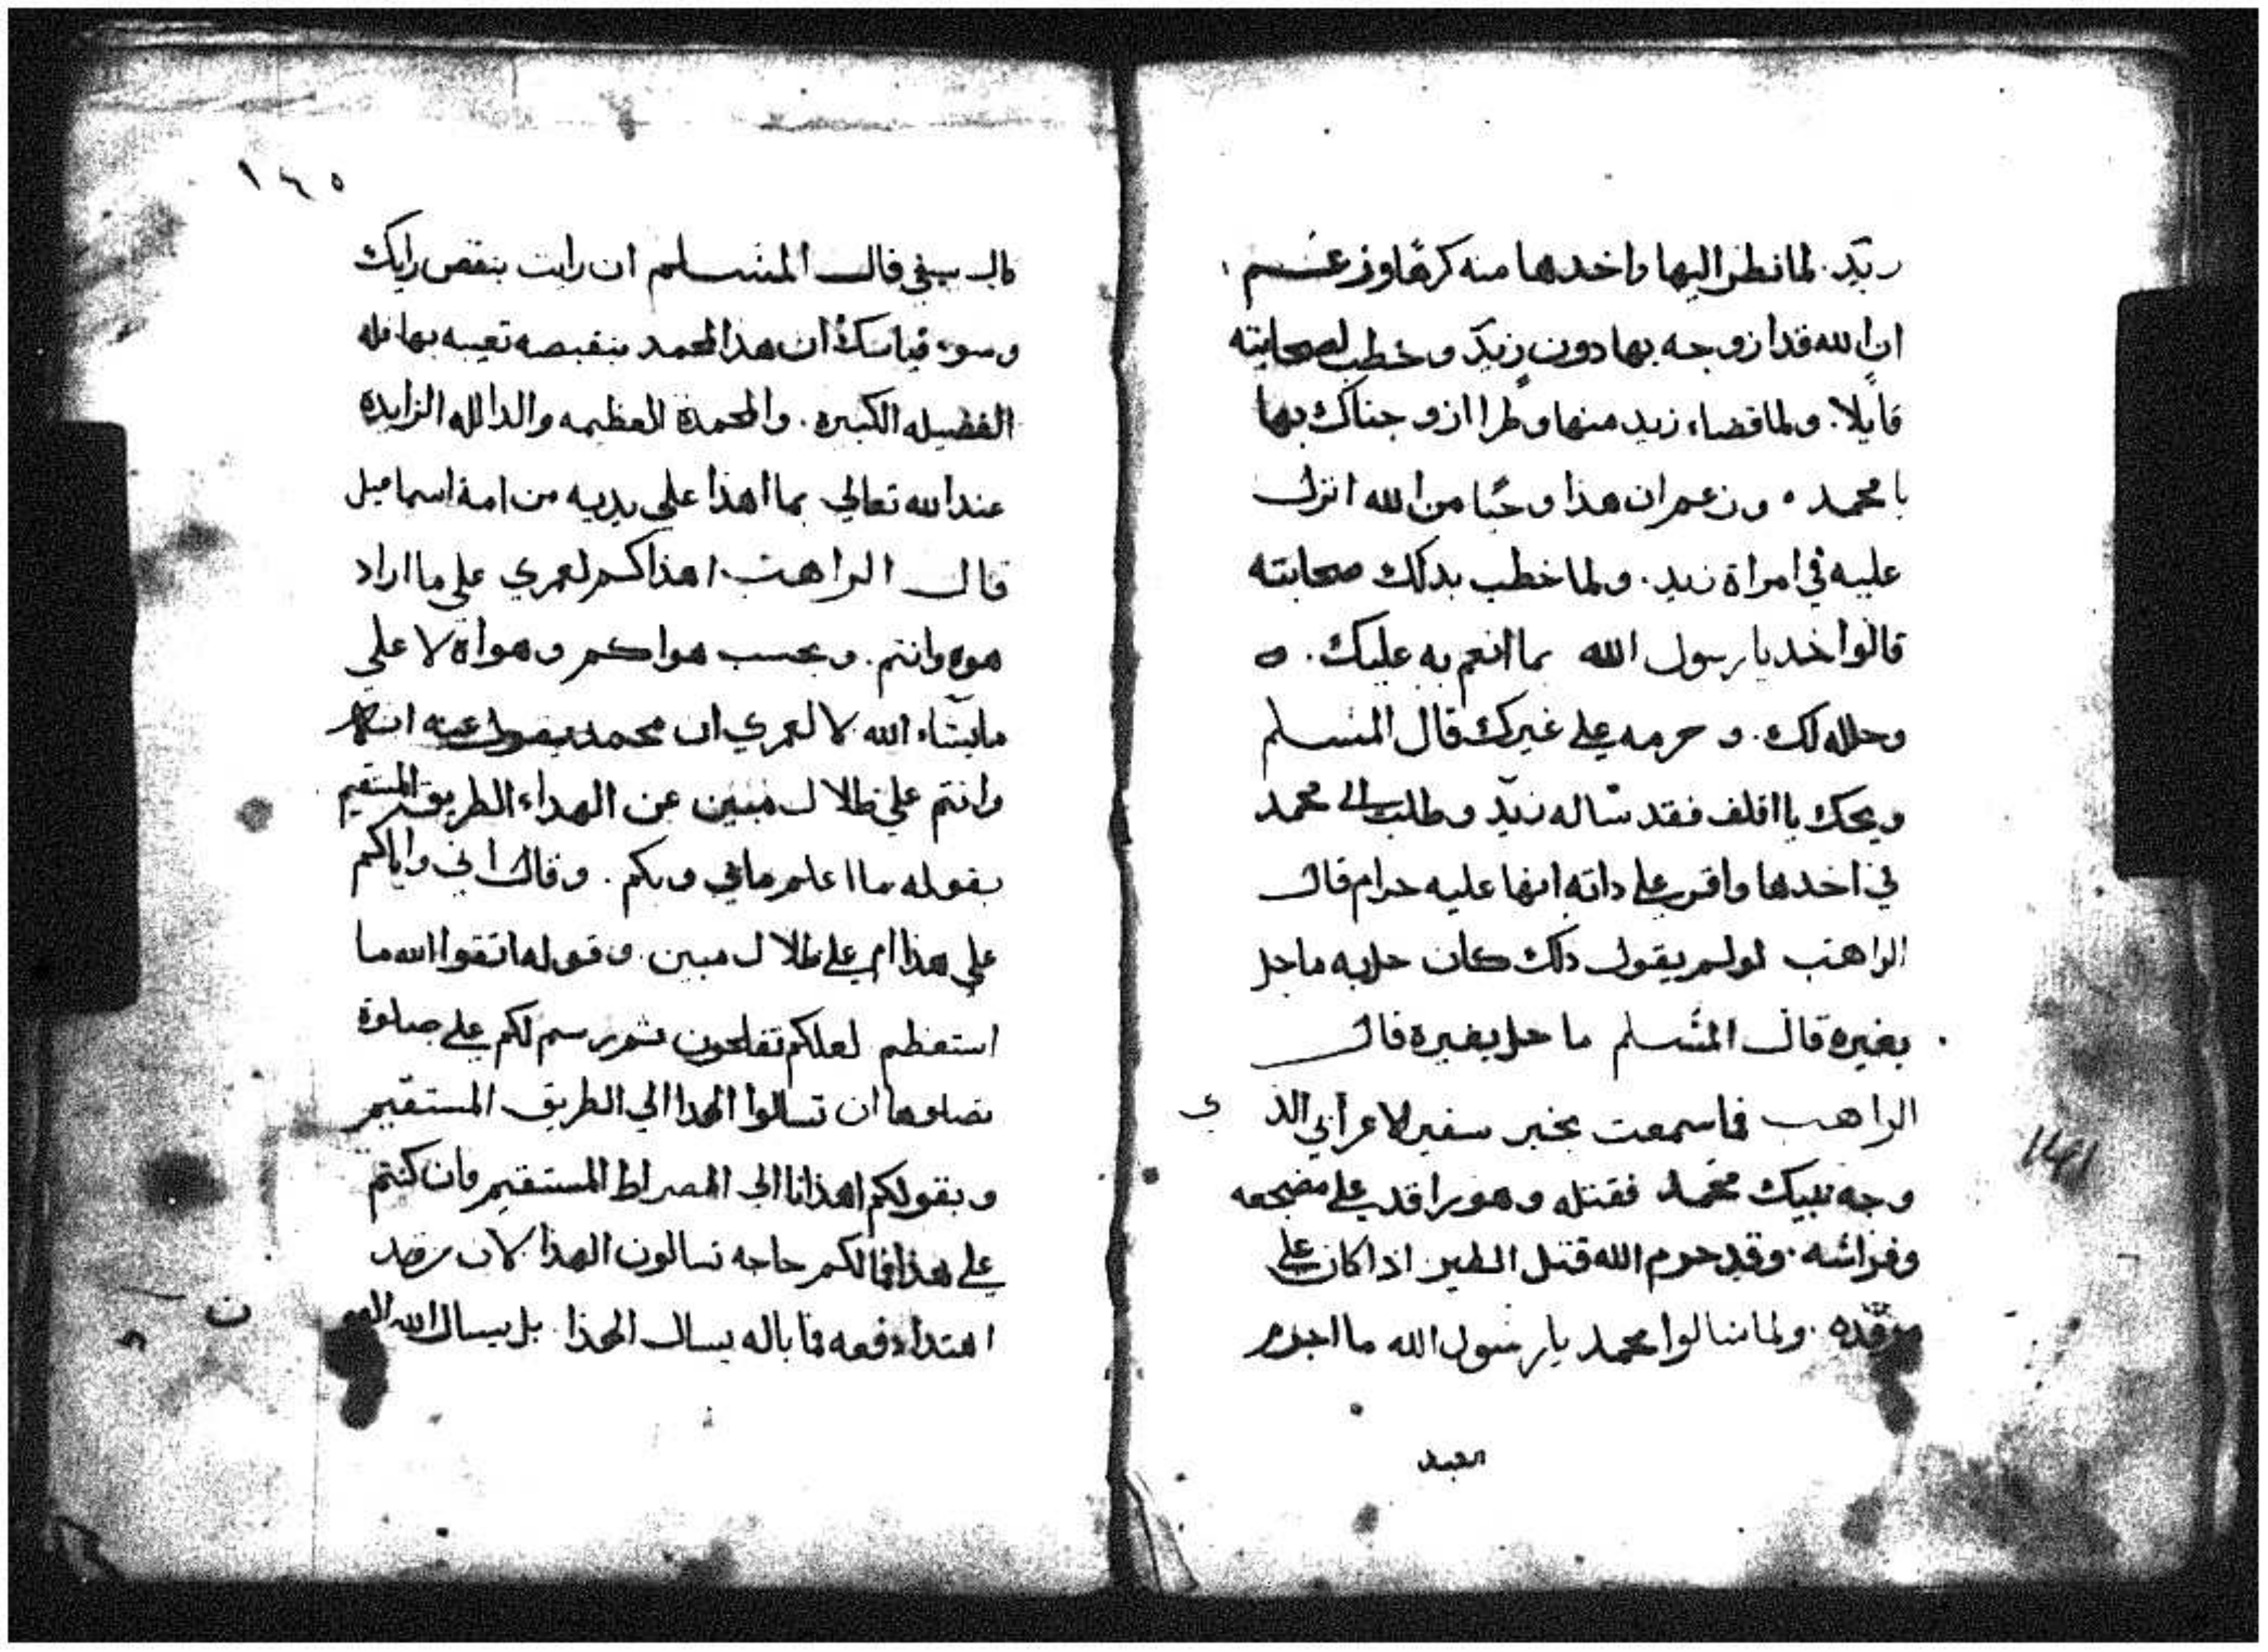 زيد. لما نظر اليها واخدها منه كرهًا وزعم
ان الله قد ازوجه بها دون زيد وخطب لصحابته
قايلا. ولما قضاء زيد منها وطرا ازوجناك بها
يا محمد ه وزعم ان هذا وحيًا من الله انزل
عليه في امراة زيد. ولما خطب بدلك صحابته
قالوا خد يا رسول الله بما انعم به عليك. ه
وحلله لك. وحرمه علي غيرك قال المسلم
ويحك يا اقلف فقد ساله زيد وطلب الي محمد
في اخدها واقر علي داته انها عليه حرام قال
الراهب لو لم يقول دلك كان حل به ما حل
بغيره قال المسلم ما حل بغيره قال
الراهب فما سمعت بخبر سفير الاعرابي الذي
وجه نبيك محمد فقتله وهو راقد علي مضجعه
وفراشه. وقد حرم الله قتل الطير اذا كان علي
مرقده. ولما سالوا محمد يا رسول الله ما اجر
العبد
١٤٥
قال المسلم ان رايت بنقص رايك
وسوء قياسك ان هذا لمحمد بنقيصه تعيبه بها فله
الفضيله الكبيره. والمحمدة العظيمه والدالله الزايدة
عند الله تعالي بما اهدا علي يديه من امة اسماعيل
قال الراهب اهداكم لعمري علي ما اراد
هوه وانتم. وبحسب هواكم وهواه لا علي
ما يشاء الله لا لعمري ان محمد يقول عنه
وانتم علي ظلال مبين عن الهداء الطريق المستقيم
بقوله ما اعلم ما في وبكم. وقال اني واياكم
علي هذا ام علي ظلال مبين. وقوله اتقوا الله ما
استعظم لعلكم تفلحون ثم رسم لكم علي صلوة
تصلوها ان تسالوا الهدا الي الطريق المستقيم
وبقولكم اهدانا الي الصراط المستقيم فان كنتم
علي هدا فما لكم حاجه تسالون الهدا لان من قد
اهتدا دفعه فما باله يسال الهدا بل يسال الله